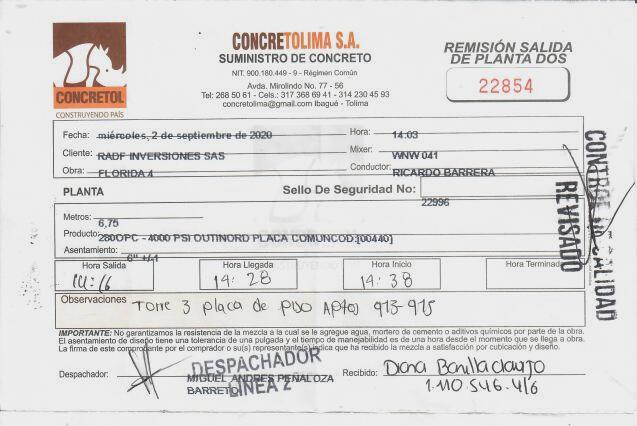 CONCRETOL
CONSTRUYENDO PAÍS
CONCRETOLIMA S.A.
SUMINISTRO DE CONCRETO
NIT. 900.180.449 - 9 - Régimen Común
Avda. Mirolindo No. 77 - 56
Tel: 268 50 61 - Cels.: 317 368 69 41 - 314 230 45 93
concretolima@gmail.com Ibagué - Tolima
REMISIÓN SALIDA
DE PLANTA DOS
22854
Fecha: miércoles, 2 de septiembre de 2020 Hora: 14:03
Cliente: RADF INVERSIONES SAS Mixer: WNW 041
Obra: FLORIDA 4 Conductor: RICARDO BARRERA
PLANTA Sello De Seguridad No: 22996
Metros: 6,75
Producto: 280OPC - 4000 PSI OUTINORD PLACA COMUNCOD:[00440]
Asentamiento: 6" +/-1
Hora Salida Hora Llegada Hora Inicio Hora Terminado
14:16 14:28 14:38
Observaciones Torre 3 placa de piso Aptos 913-915
IMPORTANTE: No garantizamos la resistencia de la mezcla a la cual se le agregue agua, mortero de cemento o aditivos químicos por parte de la obra.
El asentamiento de diseño tiene una tolerancia de una pulgada y el tiempo de manejabilidad es de una hora desde el momento que se llega a obra.
La firma de este comprobante por el comprador o su(s) representante(s) indica que ha recibido la mezcla a satisfacción por cubicación y diseño.
Despachador: MIGUEL ANDRES PEÑALOZA
BARRETO
DESPACHADOR
LINEA 2
Recibido: Diana Bonilla
1.110.546.416
REVISADO
CONTROL CALIDAD